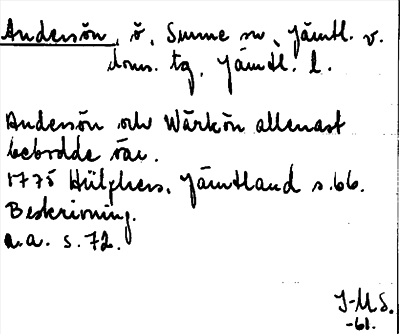 Andersön, ö, Sunne sn, Jämtl. v.
doms. tg, Jämtl. l.
Andersön och Wärkön allenast
bebodde öar.
1775 Hülphers, Jämtland s.66.
Beskrivning.
a.a. s. 72.
J-M S.
-61.